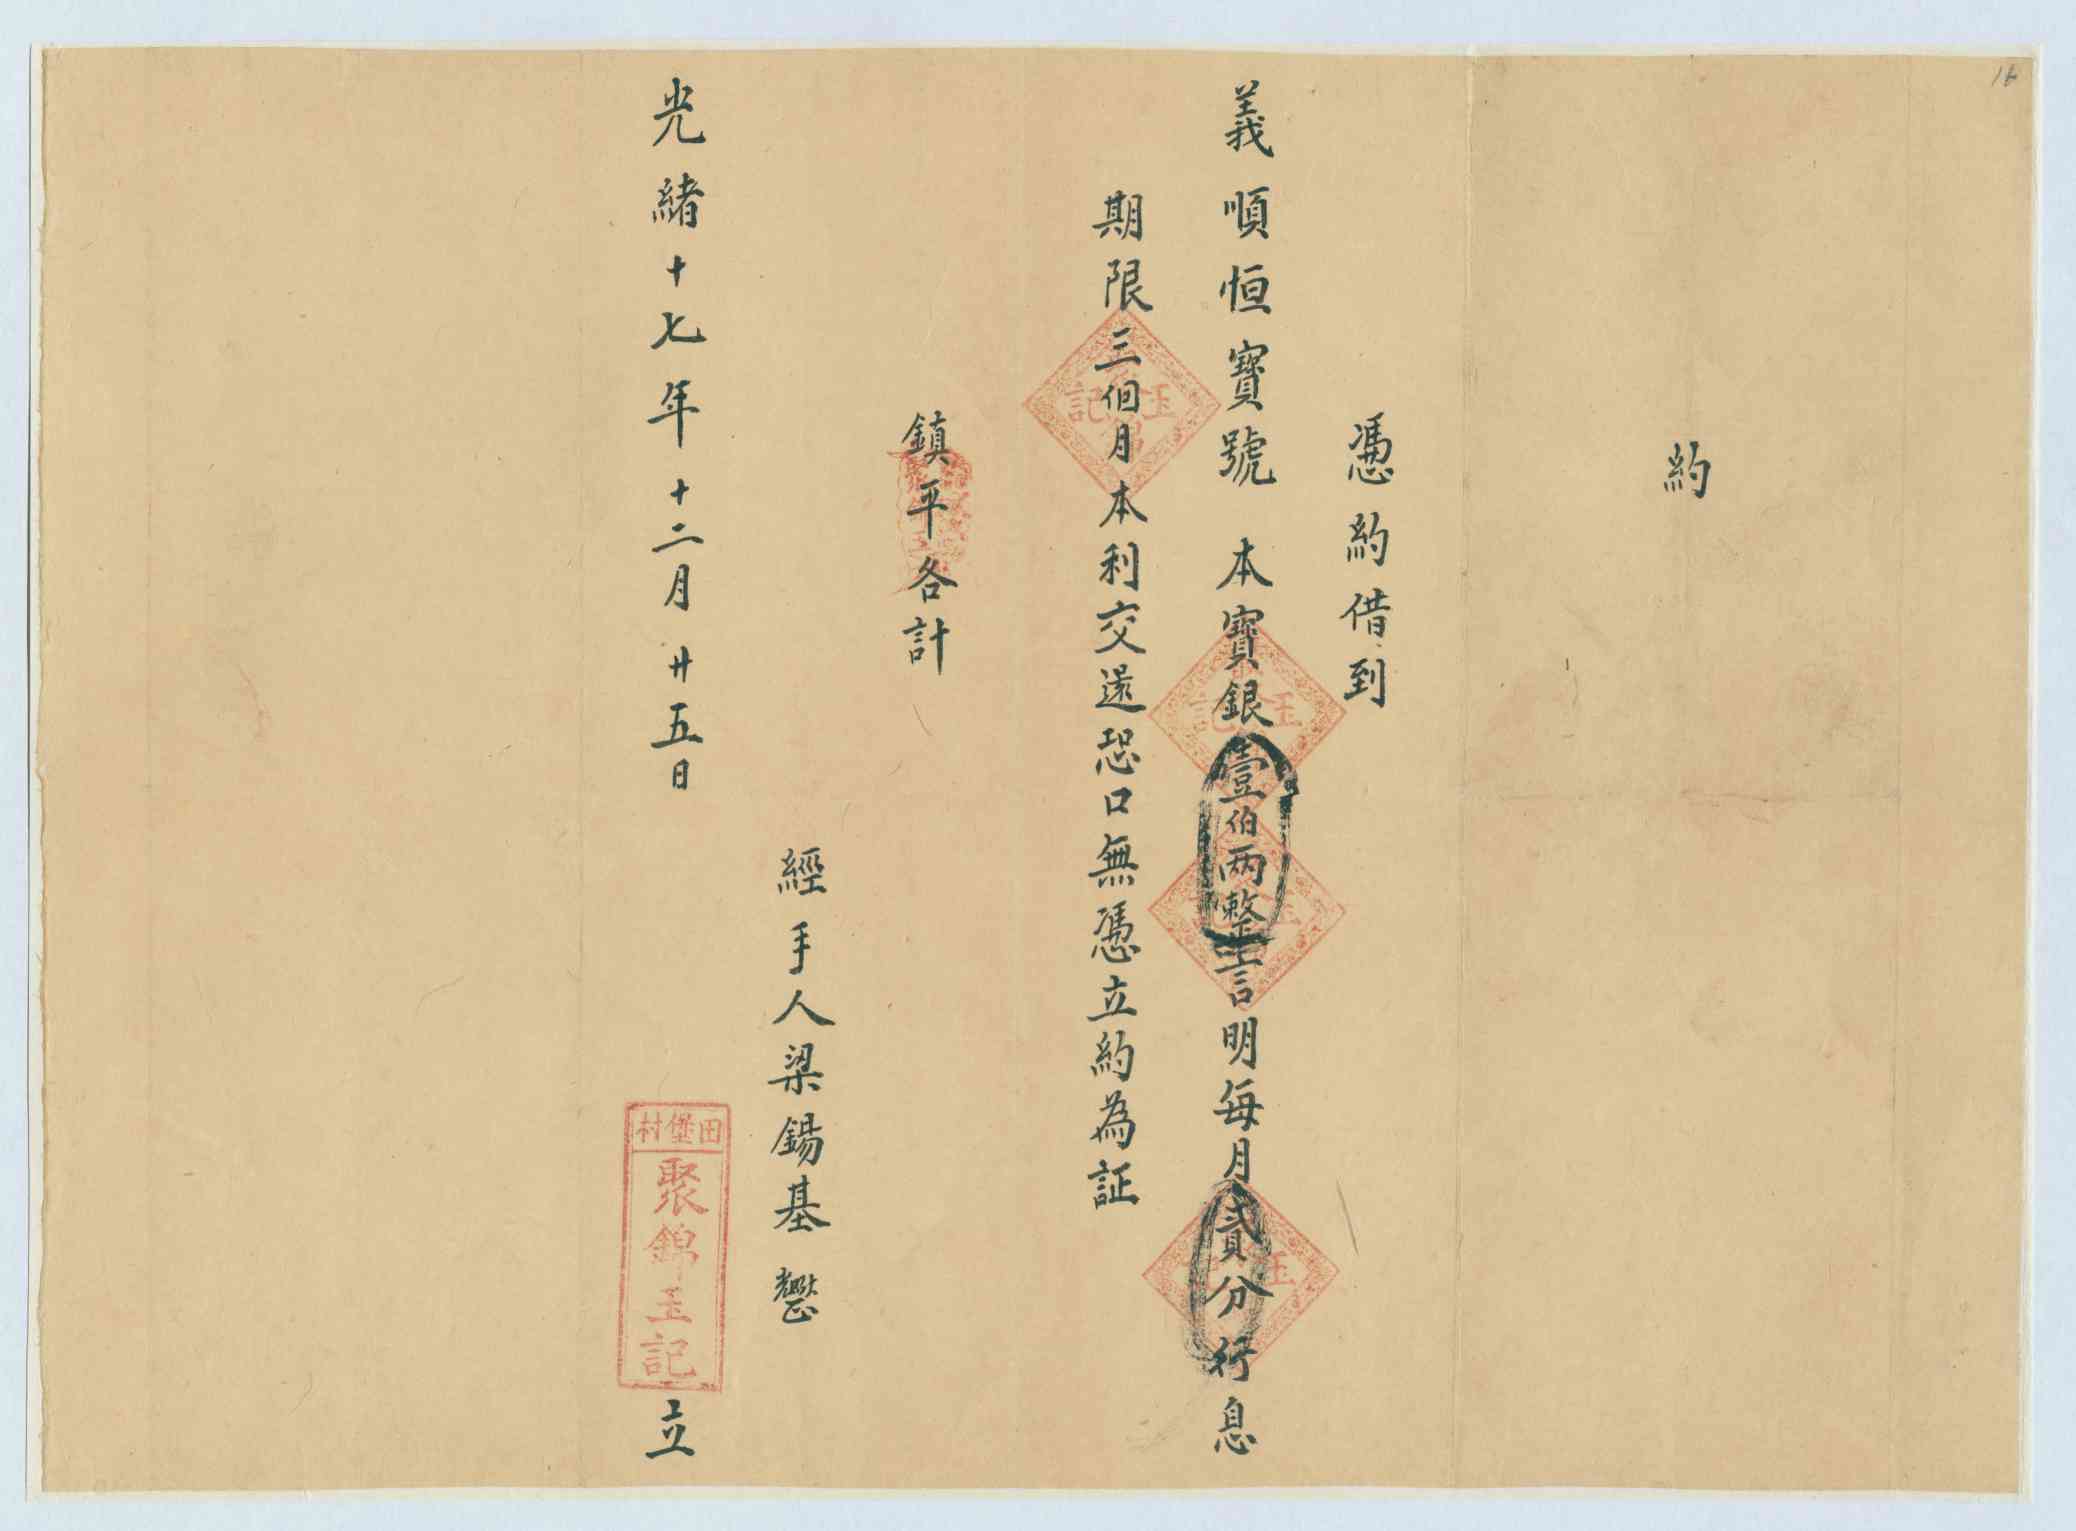 16
約
憑約借到
義順恒寶號 本寶銀壹伯两整言明每月貳分行息
期限三個月本利交還恐口無憑立約為証
鎮平各計
經手人梁錫基
光緒十七年十二月廿五日
田堡村
聚錦玉記
立
玉記
玉記
玉
玉